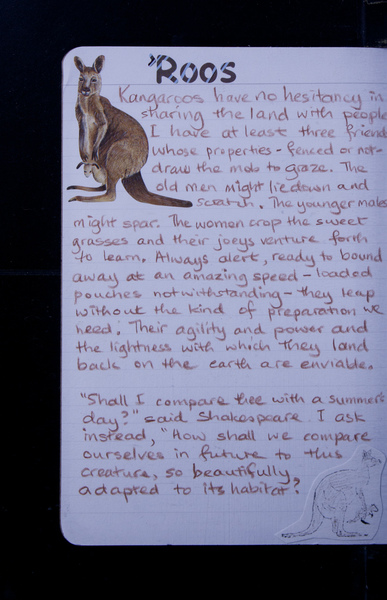 "Roos
Kangaroos have no hesitancy in
sharing the land with people
I have at least three friends
whose properties - fenced or not -
draw the mob to graze. The
old men might lie down and
scratch. The younger males
might spar. The women crop the sweet
grasses and their joeys venture forth
to learn. Always alert, ready to bound
away at an amazing speed - loaded
pouches notwithstanding - they leap
without the kind of preparation we
need. Their agility and power and
the lightness with which they land
back on the earth are enviable.
"Shall I compare thee with a summer's
day?" said Shakespeare. I ask
instead, "How shall we compare
ourselves in future to this
creature, so beautifully
adapted to its habitat?